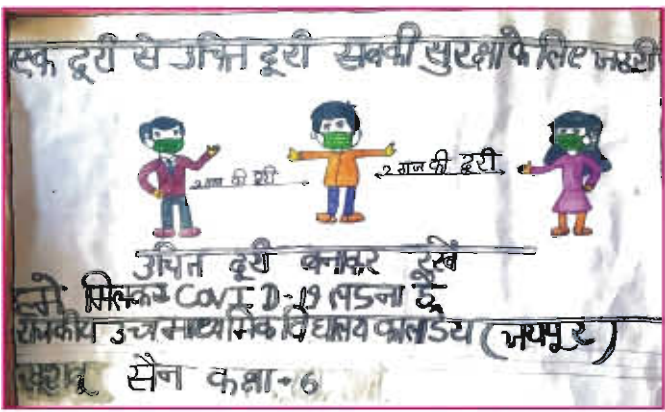 एक दूरी से उचित दूरी सबकी सुरक्षा के लिए जरूरी
2 गज की दूरी
2 गज की दूरी
उचित दूरी बनाकर रखें
हमे मिलकर COVID-19 लडना है
राजकीय उच्च माध्यमिक विद्यालय कालाडेरा (जयपुर)
सैन कक्षा-6